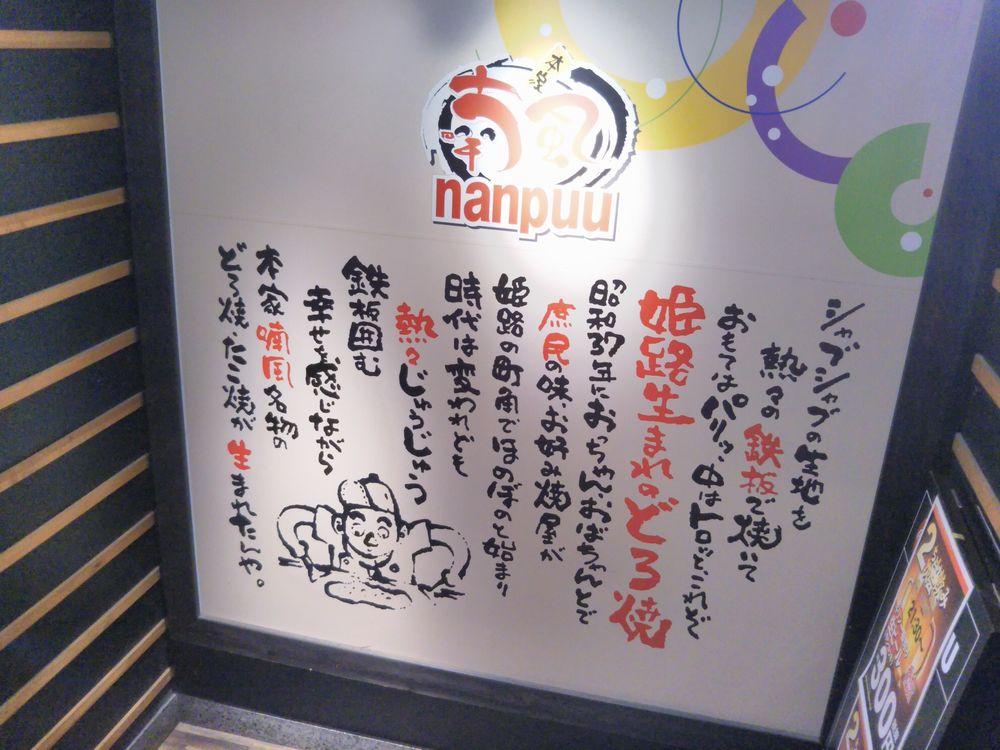 本家
喃風
nanpuu
シャブシャブの生地を
熱々の鉄板で焼いて
おもてはパリッ中はトロッとこれぞ
姫路生まれのどろ焼
昭和37年におっちゃんおばちゃんとで
庶民の味、お好み焼屋が
姫路の町角でほのぼのと始まり
時代は変われども
熱々じゅうじゅう
鉄板囲む
幸せを感じながら
本家喃風名物の
どろ焼、たこ焼が生まれたんや。
2
300円